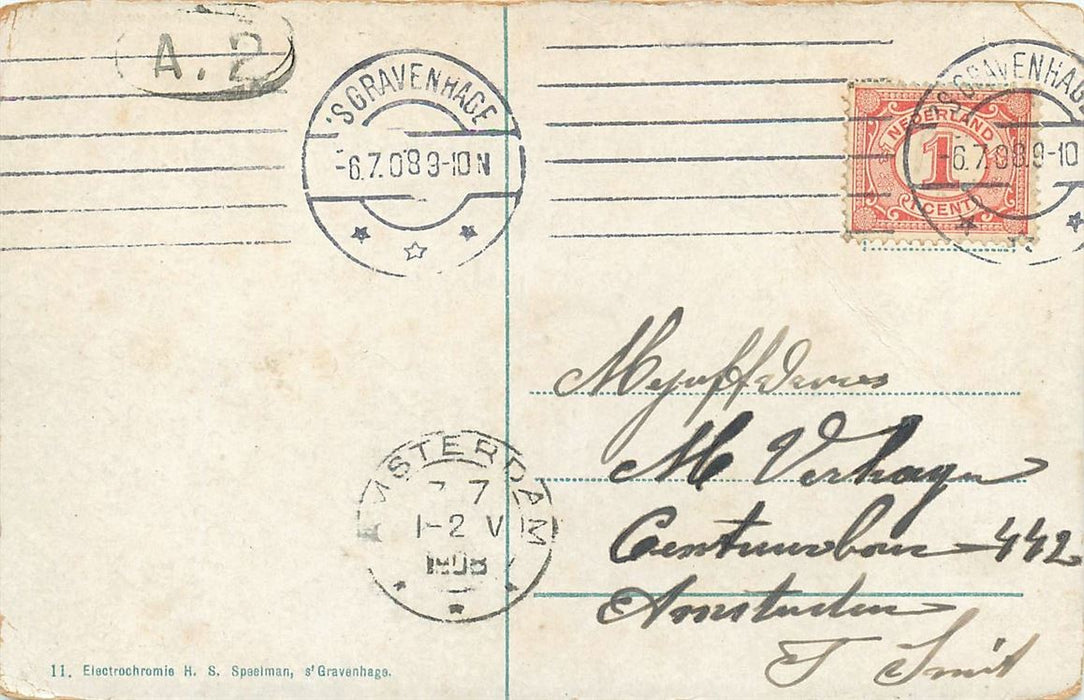 A. 2
'S GRAVENHAGE
-6.7.08 9-10 N
'S GRAVENHAGE
-6.7.08.9-10
NEDERLAND
1
CENT
Mejuff
M Verhagen
442
Amsterdam
T Smit
AMSTERDAM
7 7
1-2 V
1908
11. Electrochromie H. S. Speelman, s'Gravenhage.